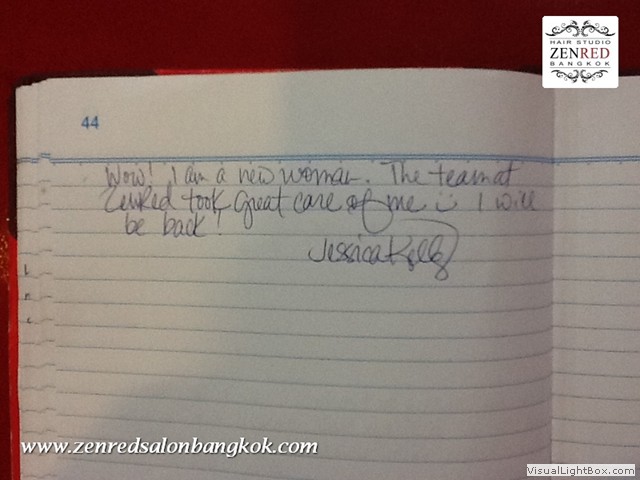 HAIR STUDIO
ZENRED
BANGKOK
44
Wow! I am a new woman. The team at
ZenRed took great care of me I will
be back!
Jessica Kelly
www.zenredsalonbangkok.com
VisualLightBox.com